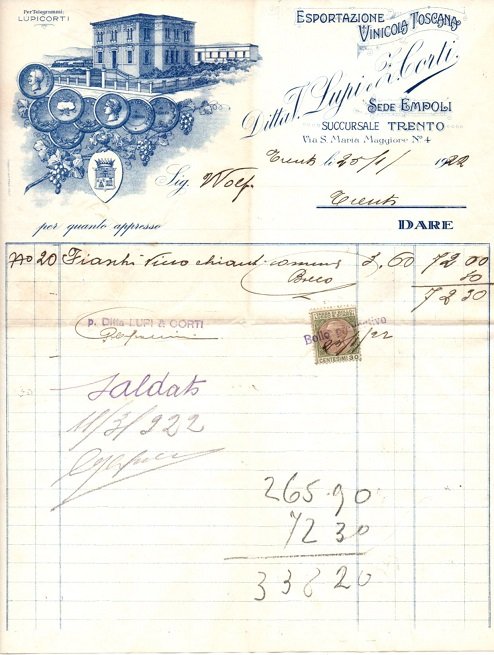 Per Telegrammi:
LUPICORTI
ESPORTAZIONE
VINICOLA TOSCANA
Ditta V. Lupi & Corti
SEDE EMPOLI
SUCCURSALE TRENTO
Via S. Maria Maggiore N.º 4
Trento li 25/1/1922
Sig. Wolf
Trento
per quanto appresso
DARE
No 20 Fiaschi Vino chianti comune £. 60 72 00
Bollo 30
72 30
p. Ditta LUPI & CORTI
CENTESIMI 30
Saldato
11/3/922
265.90
72 30
338 20